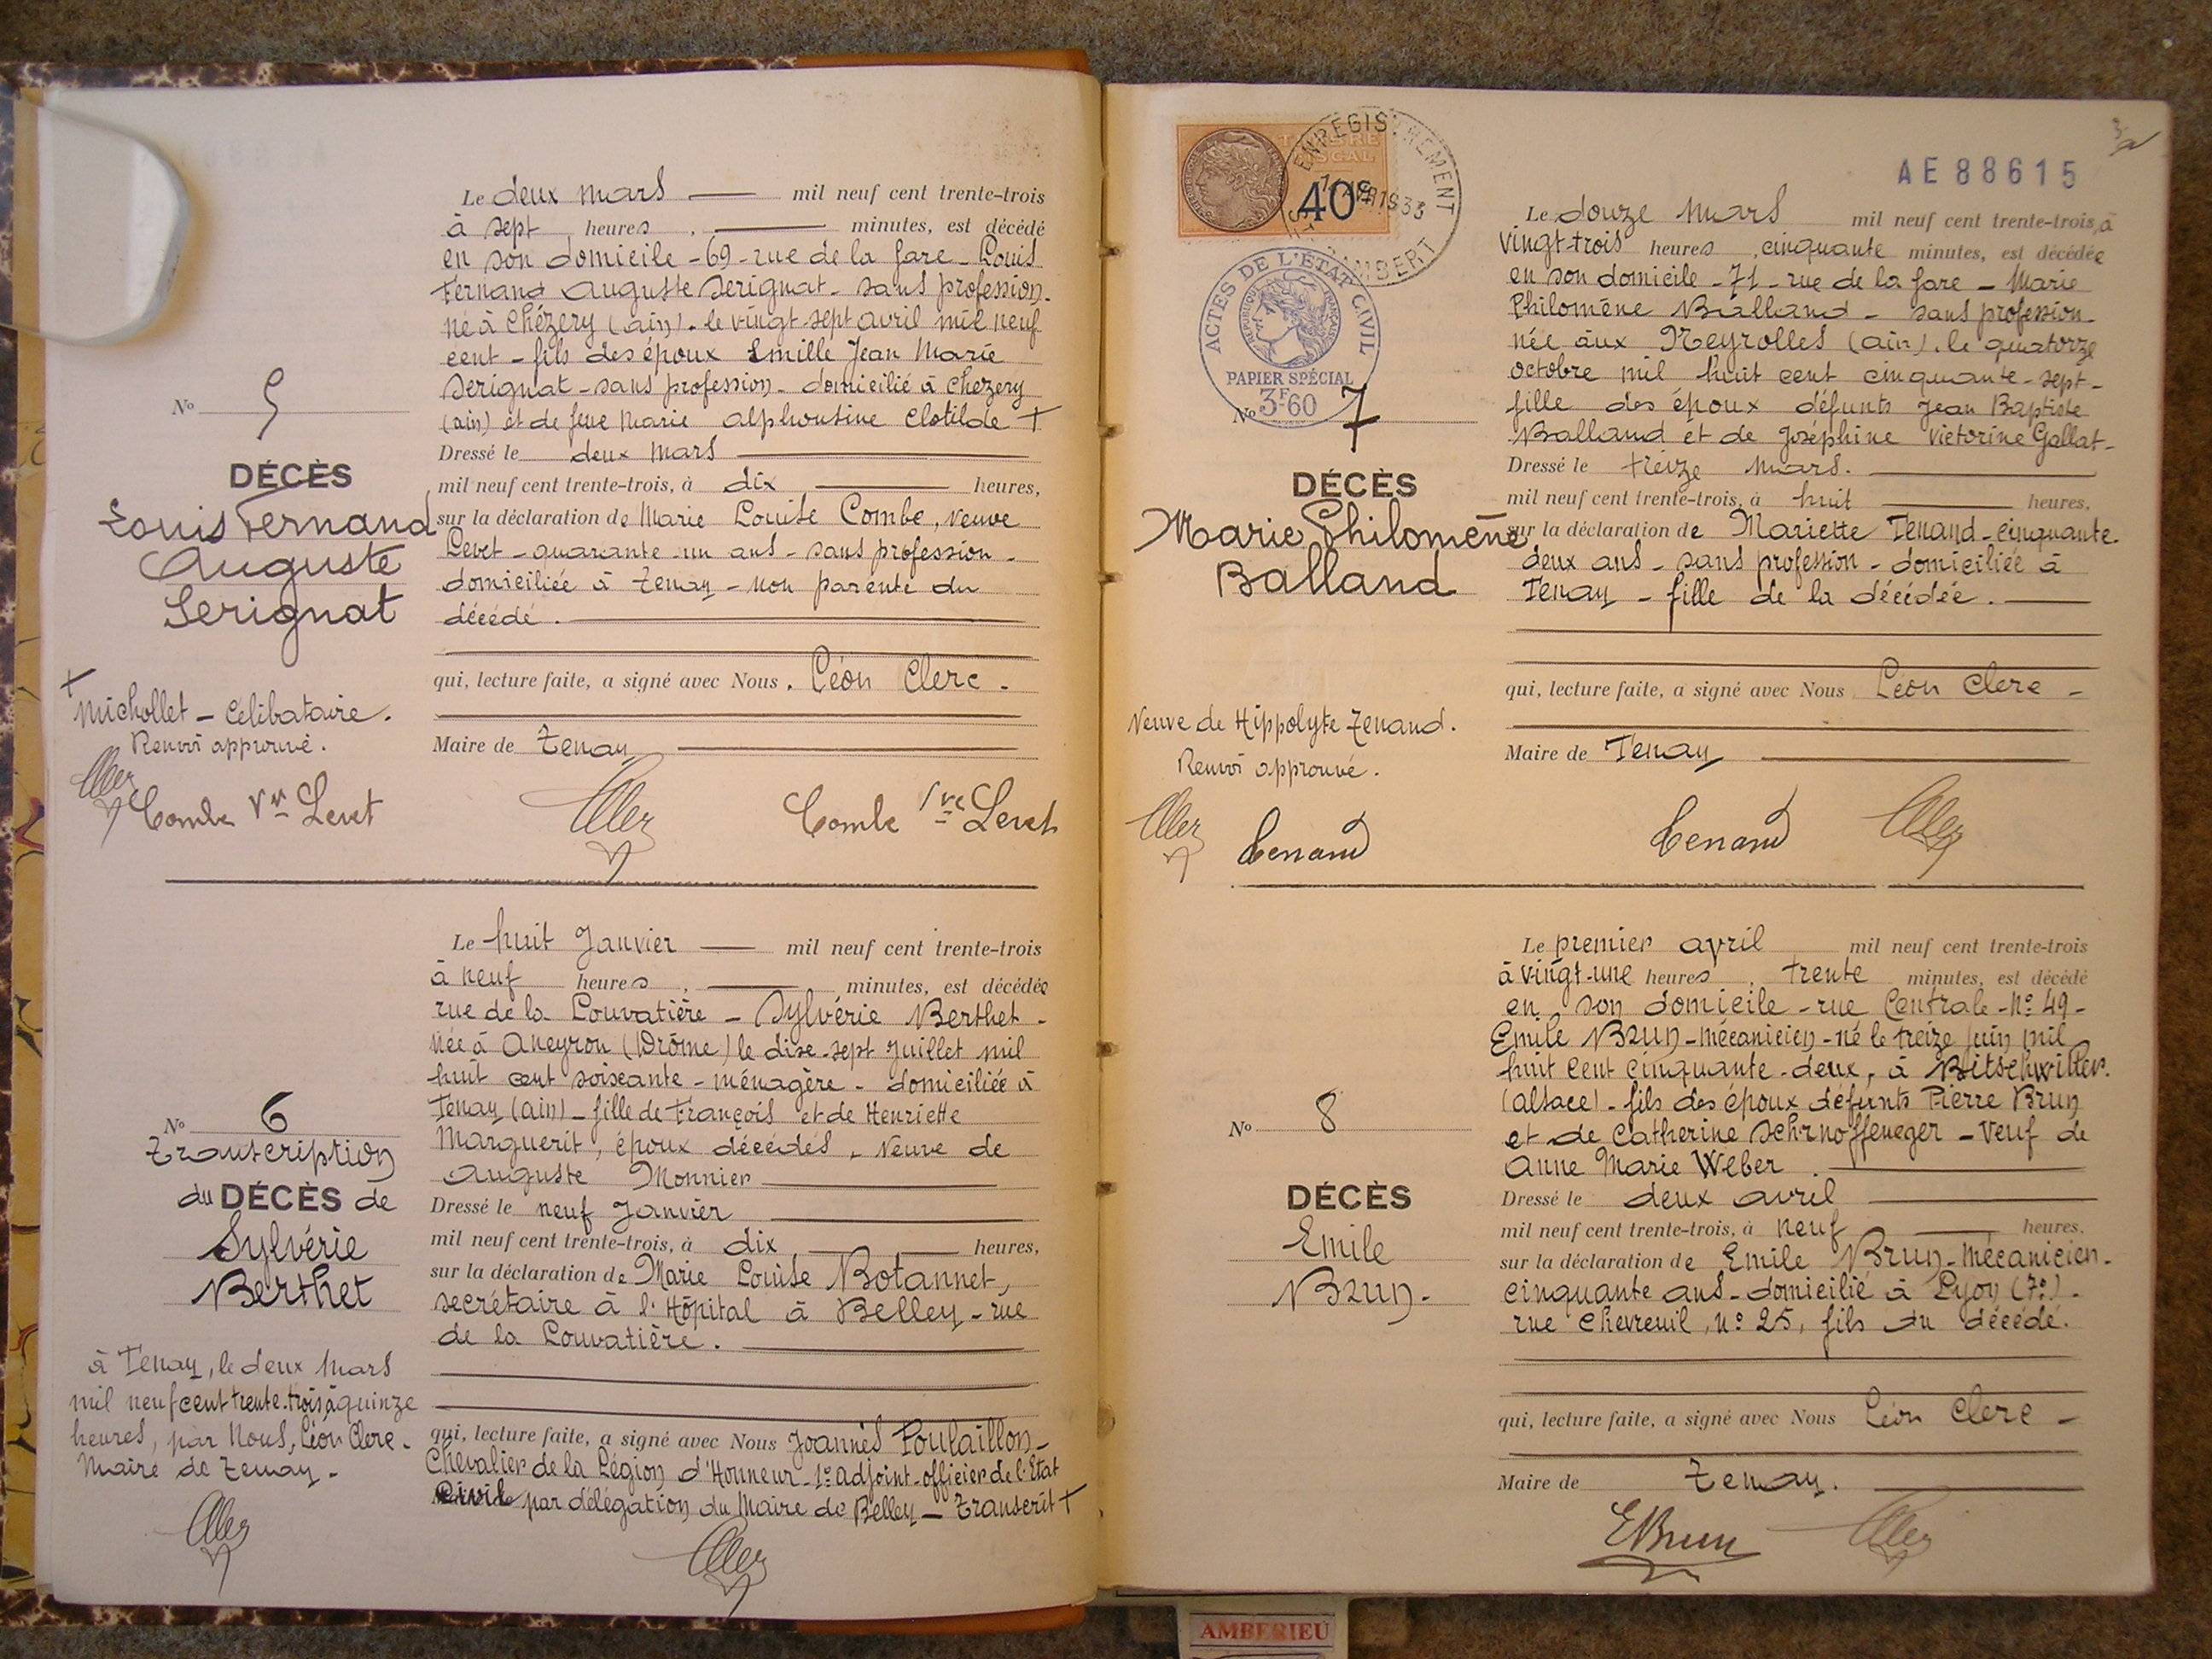 Le deux mars mil neuf cent trente-trois
à sept heures, minutes, est décédé
en son domicile - 69 - rue de la gare - Louis
Fernand Auguste Serignat - sans profession -
né à Chézery (ain). le vingt-sept avril mil neuf
cent - fils des époux Emille Jean Marie
Serignat - sans profession - domicilié à Chezery
(ain) et de feue Marie alphonsine Clotilde +
Dressé le deux mars
mil neuf cent trente-trois, à dix heures,
sur la déclaration de Marie Louise Combe, veuve
Levet - quarante-un ans - sans profession -
domiciliée à Tenay - non parente du
décédé.
qui, lecture faite, a signé avec Nous. Léon Clerc -
Maire de Tenay
No 5
DÉCÈS
Louis Fernand
Auguste
Serignat
+
Michollet - Célibataire.
Renvoi approuvé.
Combe Vve Levet
Combe Vve Levet
Le huit Janvier mil neuf cent trente-trois
à neuf heures, minutes, est décédée
rue de la Louvatière - Sylvérie Berthet -
née à Aneyron (Drôme) le dixe-sept juillet mil
huit cent soixante - ménagère - domiciliée à
Tenay (ain) - fille de François et de Henriette
Marguerit, époux décédés, - Veuve de
Auguste Monnier
Dressé le neuf Janvier
mil neuf cent trente-trois, à dix heures,
sur la déclaration de Marie Louise Botannet,
secrétaire à l'Hôpital à Belley - rue
de la Louvatière.
qui, lecture faite, a signé avec Nous Joannès Poulaillon -
Chevalier de la Légion d'Honneur - 1er adjoint - officier de l'Etat
Civil par délégation du Maire de Belley - Transcrit +
No 6
Transcription
du DÉCÈS de
Sylvérie
Berthet
à Tenay, le deux Mars
mil neuf cent trente-trois à quinze
heures, par Nous, Léon Clerc -
Maire de Tenay -
TIMBRE
FISCAL
40c
ENREGISTREMENT
AVR 1933
AMBERT
ACTES DE L'ÉTAT CIVIL
RÉPUBLIQUE FRANÇAISE
PAPIER SPÉCIAL
3F60
3
AE 88615
Le douze Mars mil neuf cent trente-trois, à
vingt-trois heures, cinquante minutes, est décédée
en son domicile - 71 - rue de la gare - Marie
Philomène Balland - sans profession -
née aux Neyrolles (ain), le quatorze
octobre mil huit cent cinquante-sept -
fille des époux défunts Jean Baptiste
Balland et de Joséphine Victorine Gallat -
Dressé le treize Mars.
mil neuf cent trente-trois, à huit heures,
sur la déclaration de Mariette Tenand - cinquante-
deux ans - sans profession - domiciliée à
Tenay - fille de la décédée.
qui, lecture faite, a signé avec Nous Léon Clerc -
Maire de Tenay
No 7
DÉCÈS
Marie Philomène
Balland
Veuve de Hippolyte Tenand.
Renvoi approuvé.
Tenand
Tenand
Le premier avril mil neuf cent trente-trois
à vingt-une heures, trente minutes, est décédé
en son domicile - rue Centrale - No 49 -
Emile Brun - mécanicien - né le treize juin mil
huit cent cinquante-deux, à Bitschwiller.
(alsace) - fils des époux défunts Pierre Brun
et de Catherine Schrnoffeneger - Veuf de
Anne Marie Weber.
Dressé le deux avril
mil neuf cent trente-trois, à neuf heures.
sur la déclaration de Emile Brun - mécanicien -
cinquante ans - domicilié à Lyon (7e) -
rue Chevreuil, No 25, fils du décédé.
qui, lecture faite, a signé avec Nous Léon Clerc -
Maire de Tenay.
EBrun
No 8
DÉCÈS
Emile
Brun -
AMBERIEU